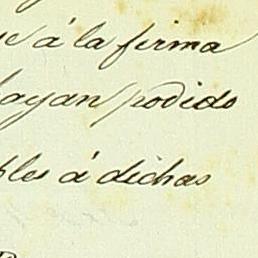 á la firma
hayan podido
bles á dichas